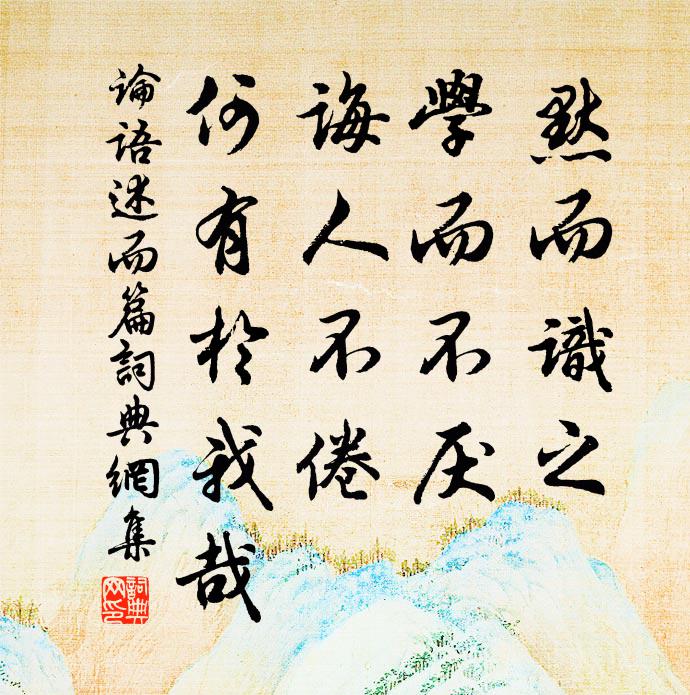 默而識之
學而不厌
誨人不倦
何有於我哉
論語述而篇詞典網集
詞典
网印